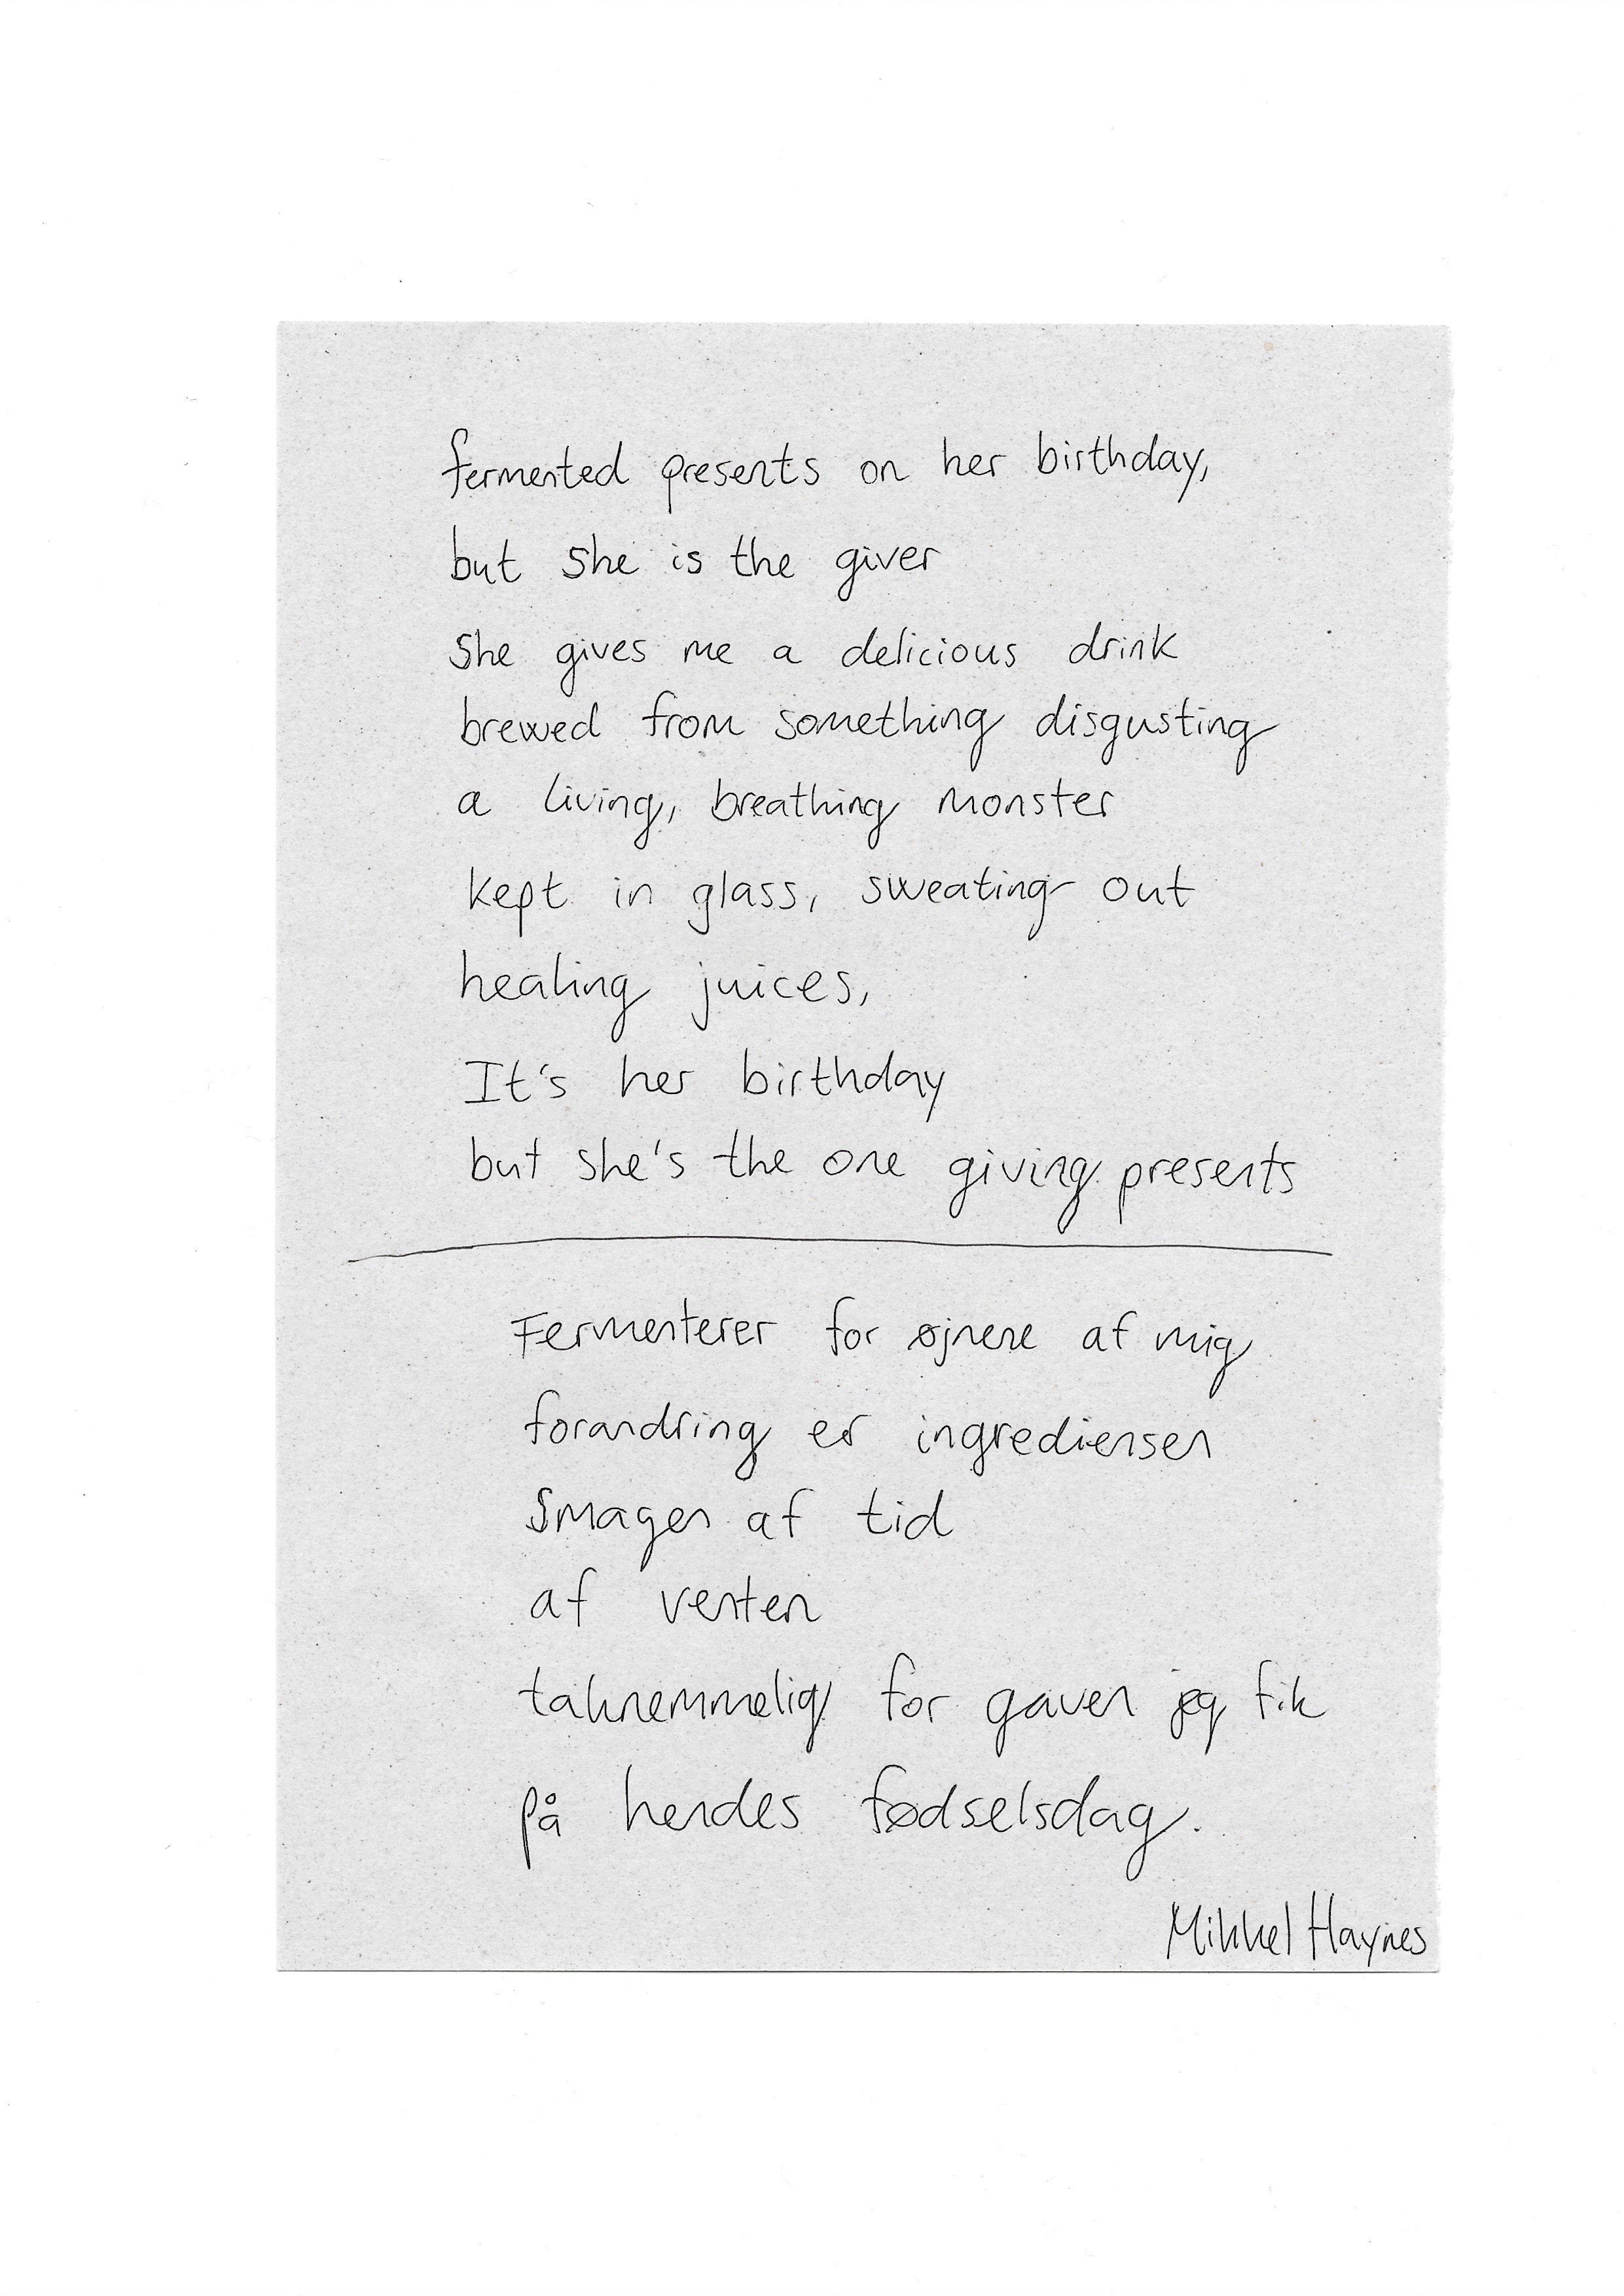 fermented presents on her birthday,
but she is the giver
She gives me a delicious drink
brewed from something disgusting
a living, breathing monster
kept in glass, sweating out
healing juices,
It's her birthday
but she's the one giving presents
Fermenterer for øjnene af mig
forandring er ingrediensen
Smagen af tid
af venten
taknemmelig for gaven jeg fik
på hendes fødselsdag.
Mikkel Haynes